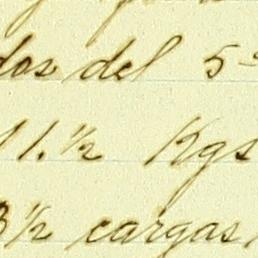 dos del 5
11.½ Kgs
3½ cargas